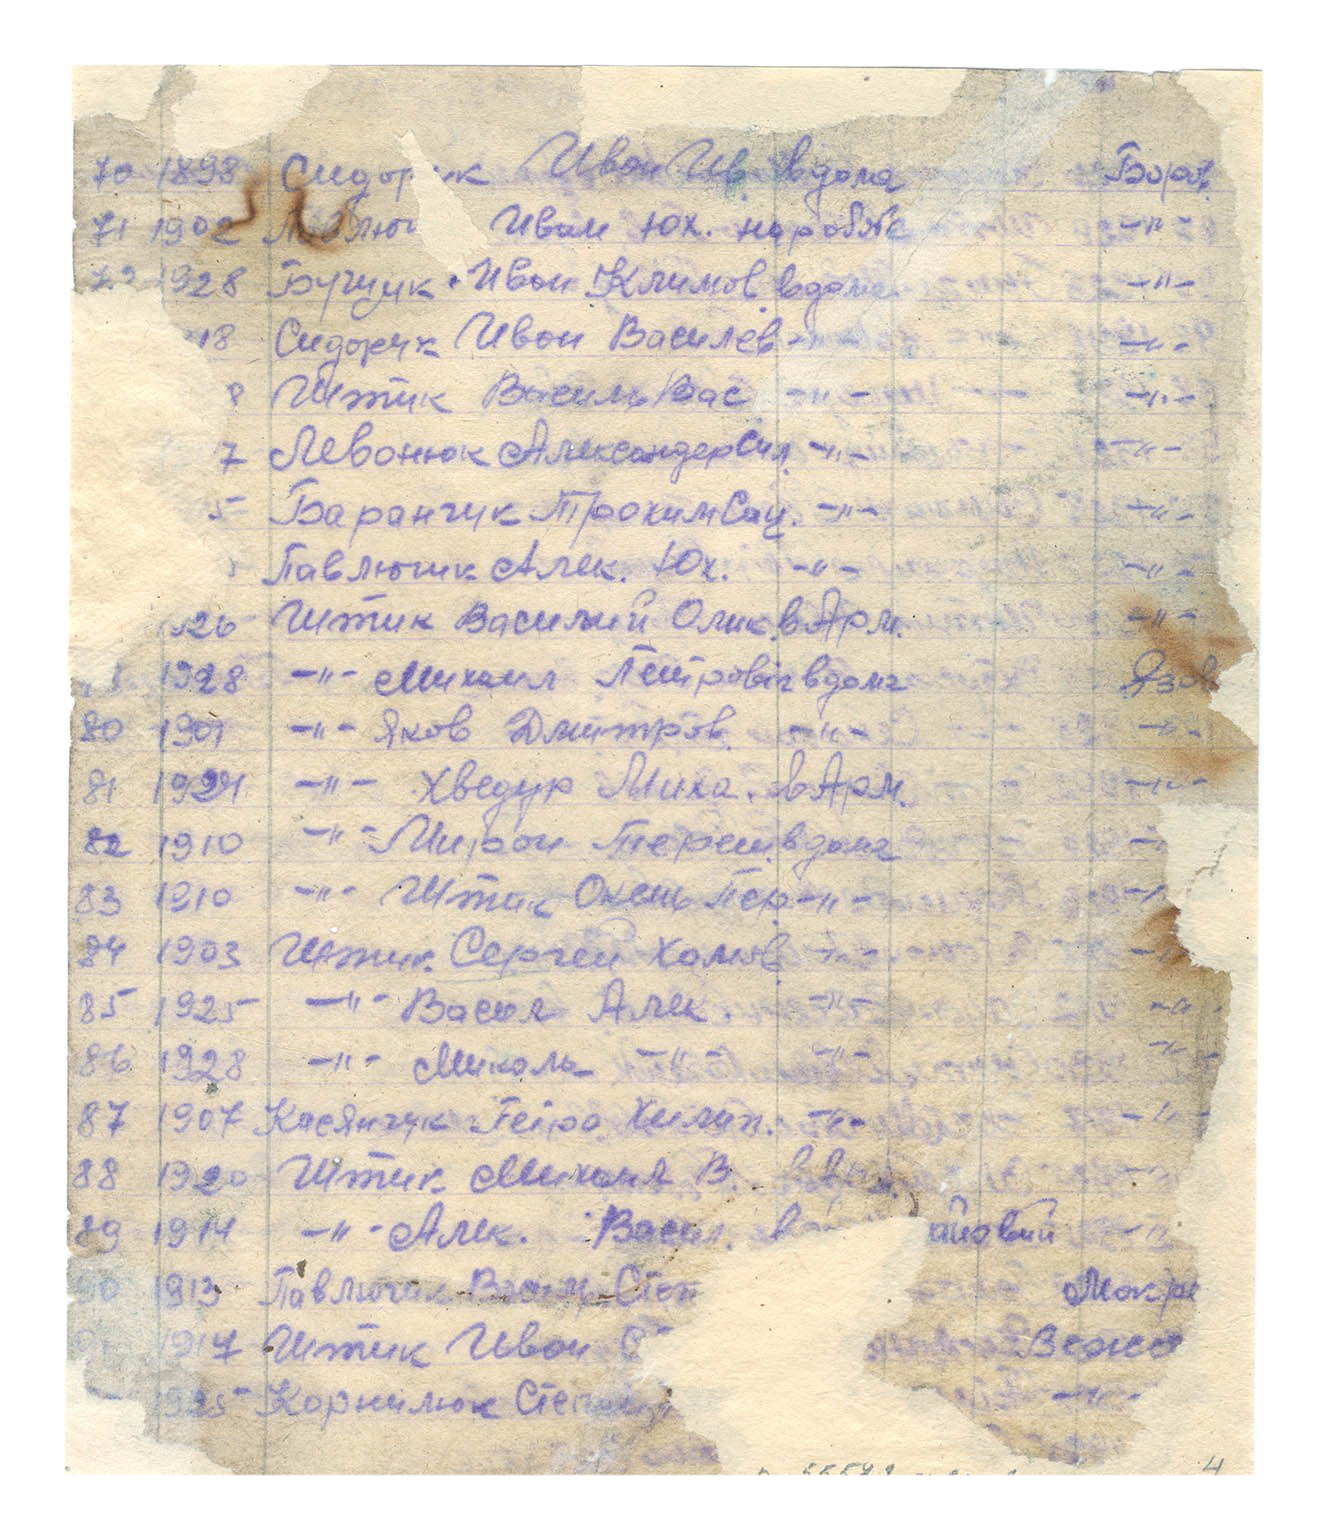 70 1898 Сидорук Иван Ив. вдома Бор.
71 1902 Иван Юх. на роботе -"-
1928 Бущук Иван Климов. вдома -"-
18 Сидорук Иван Василев -"- -"-
8 Штик Василь Вас -"- -"-
7 Левонюк Александер Сил. -"- -"-
5 Баранчук Трохим Сац. -"- -"-
Павлючик Алек. Юх. -"- -"-
926 Штик Василий Олик. в Арм. -"-
1928 -"- Михаил Петрович вдома Язов
80 1901 -"- Яков Дмитров. -"- -"-
81 1924 -"- Хведур Миха. в Арм. -"-
82 1910 -"- Мирон Тереш. вдома -"-
83 1910 -"- Штик Охень Пер -"- -"-
84 1903 Штик Сергей Хомов -"- -"-
85 1925 -"- Васил Алек. -"- -"-
86 1928 -"- Миколь -"- -"- -"-
87 1907 Касянчук Петро Хилип. -"- -"-
88 1920 Штик Михаил В. -"-
89 1914 -"- Алек. Васил. -"-
90 1913 Павлючик Василь Степ Мокре
1917 Штик Иван
1925 Корнилюк Степан -"-
4